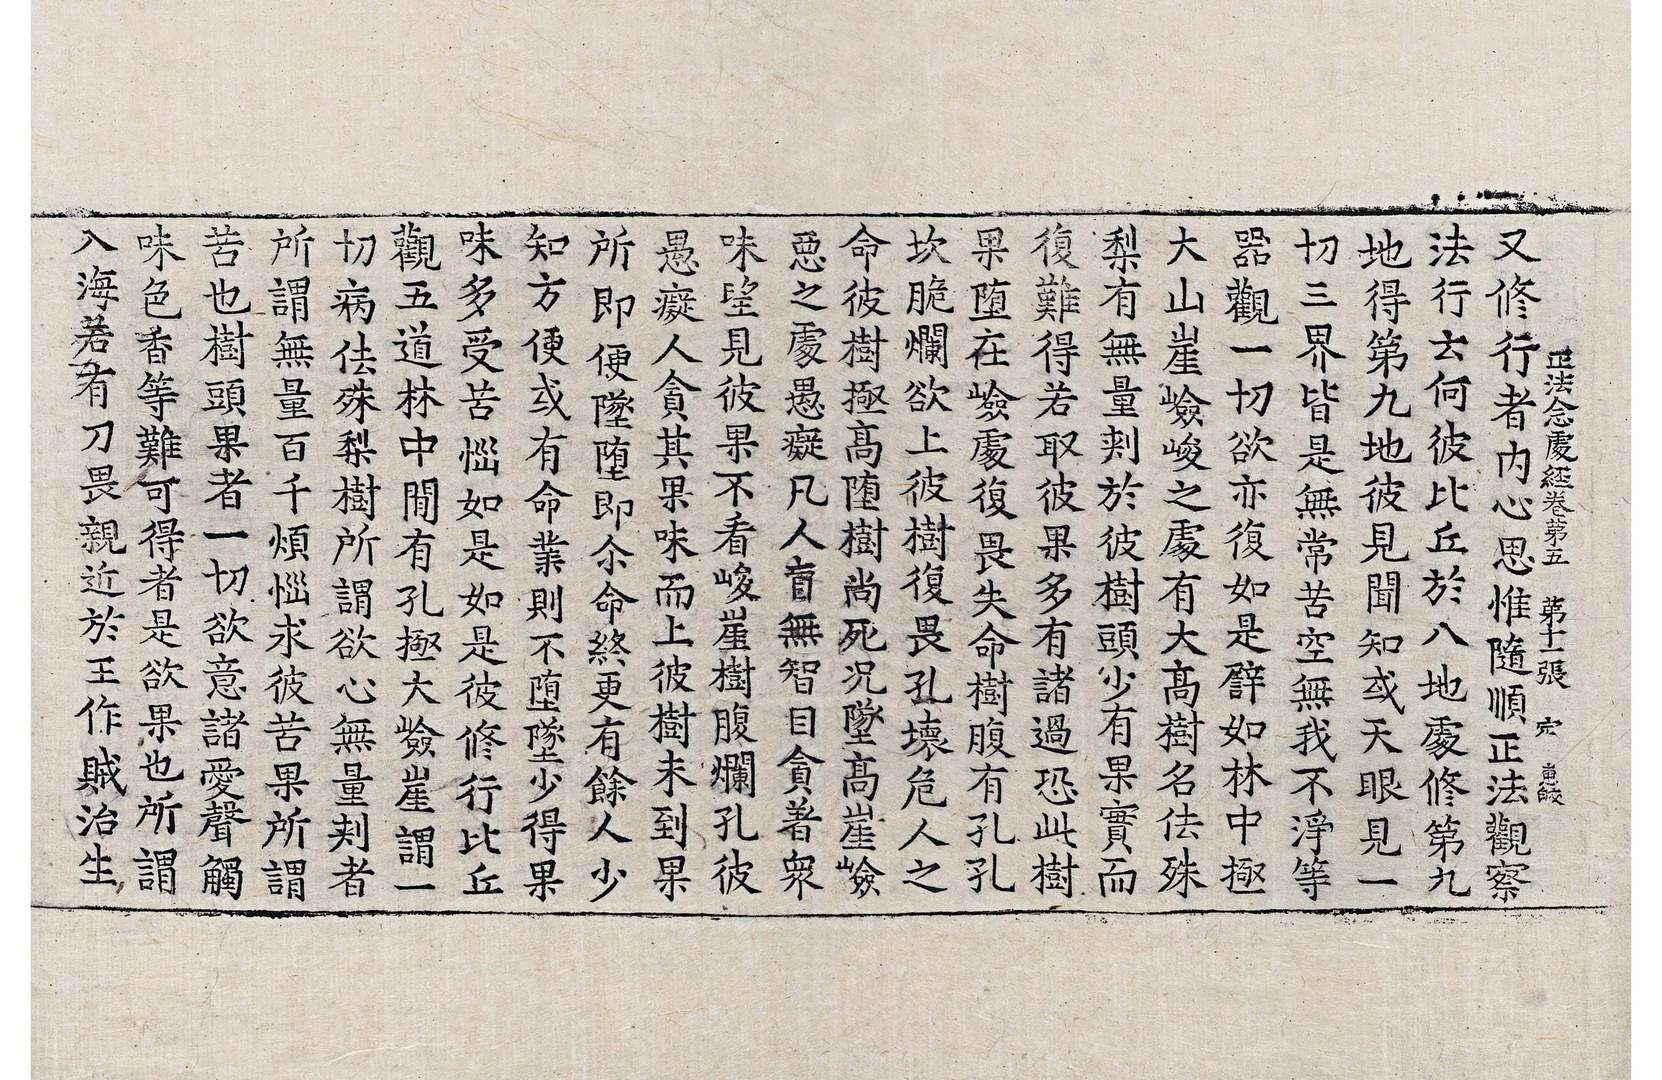 正法念處經卷第五 第十一張 完
又修行者内心思惟隨順正法觀察
法行云何彼比丘於八地處修第九
地得第九地彼見聞知或天眼見一
切三界皆是無常苦空無我不淨等
噐觀一切欲亦復如是譬如林中極
大山崖嶮峻之處有大高樹名佉殊
梨有無量刾於彼樹頭少有果實而
復難得若取彼果多有諸過恐此樹
果堕在嶮處復畏失命樹腹有孔孔
坎脆爛欲上彼樹復畏孔壞危人之
命彼樹極高堕樹尚死况墜高崖嶮
惡之處愚癡凡人盲無智目貪著衆
味望見彼果不看峻崖樹腹爛孔彼
愚癡人貪其果味而上彼樹未到果
所即便墜堕即尒命終更有餘人少
知方便或有命業則不堕墜少得果
味多受苦惱如是如是彼修行比丘
觀五道林中閒有孔極大嶮崖謂一
切病佉殊梨樹所謂欲心無量刾者
所謂無量百千煩惱求彼苦果所謂
苦也樹頭果者一切欲意諸愛聲觸
味色香等難可得者是欲果也所謂
入海若有刀畏親近於王作賊治生